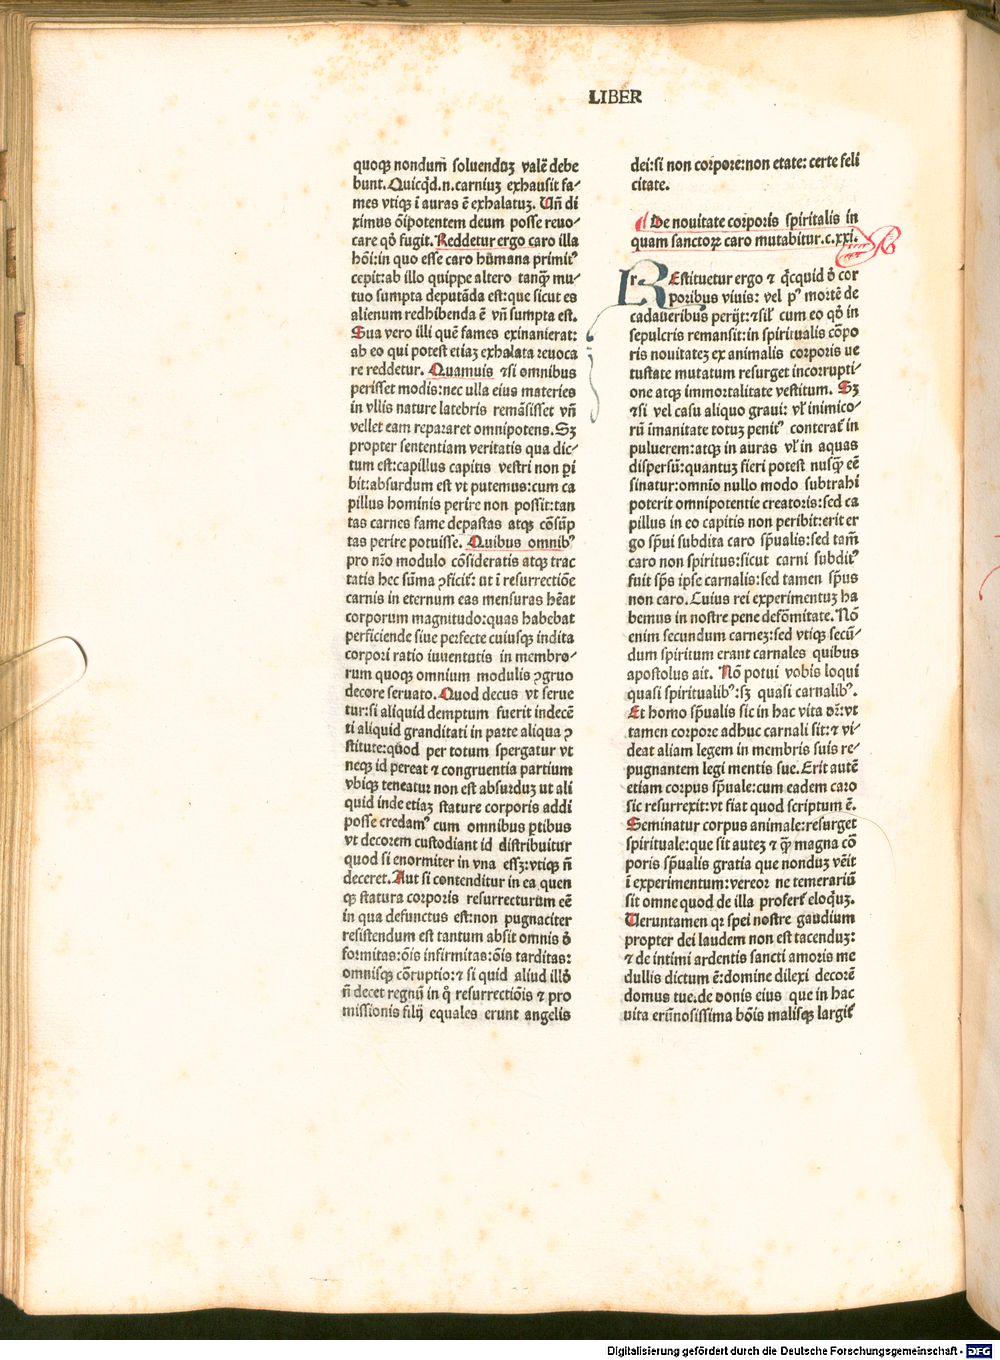 LIBER
quoqꝫ nondum̄ soluenduꝫ valē debe
bunt. Quicq̇d.n.carniuꝫ exhausit fa⸗
mes vtiqꝫ ī auras ē exhalatuꝫ. Vn̄ di
ximus oīpotentem deum posse reuo⸗
care qð fugit. Reddetur ergo caro illa
hōi: in quo esse caro humana primitꝰ
cepit: ab illo quippe altero tanqꝫ mu⸗
tuo sumpta deputāda est: que sicut es
alienum redhibenda ē vn̄ sumpta est.
Sua vero illi quē fames exinanierat:
ab eo qui potest etiaꝫ exhalata reuoca
re reddetur. Quamuis ⁊si omnibus
perisset modis: nec ulla eius materies
in vllis nature latebris remāsisset vn̄
vellet eam repararet omnipotens. Sꝫ
propter sententiam veritatis qua dic⸗
tum est: capillus capitis vestri non ꝑi
bit: absurdum est vt putemus: cum ca
pillus hominis perire non possit: tan
tas carnes fame depastas atqꝫ cōsūp
tas perire potuisse. Quibus omnibꝰ
pro nr̄o modulo cōsideratis atqꝫ trac
tatis hec sūma ꝯficit᷑: ut ī resurrectiōe
carnis in eternum eas mensuras hēat
corporum magnitudo: quas habebat
perficiende siue perfecte cuiusqꝫ indita
corpori ratio iuuentutis in membro⸗
rum quoqꝫ omnium modulis ꝯgruo
decore seruato. Quod decus vt serue
tur: si aliquid demptum fuerit indecē
ti aliquid granditati in parte aliqua ꝯ
stitute: quod per totum spergatur vt
neqꝫ id pereat ⁊ congruentia partium
vbiqꝫ teneatur non est absurduꝫ ut ali
quid inde etiaꝫ stature corporis addi
posse credamꝰ cum omnibus ꝑtibus
vt decorem custodiant id distribuitur
quod si enormiter in vna essꝫ: vtiqꝫ n̄
deceret. Aut si contenditur in ea quen
qꝫ statura corporis resurrecturum eē
in qua defunctus est: non pugnaciter
resistendum est tantum absit omnis ð
formitas: oīs infirmitas: oīs tarditas:
omnisqꝫ cōruptio: ⁊ si quid aliud illð
n̄ decet regnū in q̇ resurrectiōis ⁊ pro
missionis filij equales erunt angelis
dei: si non corpore: non etate: certe feli
citate.
¶ De nouitate corporis spiritalis in
quam sanctoꝝ caro mutabitur. c. xxi.
REstituetur ergo ⁊ q̇cquid ð cor
poribus viuis: vel pꝰ mortē de
cadaueribus perijt: ⁊ sil᷑ cum eo qð in
sepulcris remansit: in spiritualis cōpo
ris nouitateꝫ ex animalis corporis ue
tustate mutatum resurget incorrupti⸗
one atqꝫ immortalitate vestitum. Sꝫ
⁊si vel casu aliquo graui: vl᷑ inimico⸗
rū imanitate totuꝫ penitꝰ conterat᷑ in
puluerem: atqꝫ in auras vl᷑ in aquas
dispersū: quantuꝫ fieri potest nusqꝫ eē
sinatur: omnīo nullo modo subtrahi
poterit omnipotentie creatoris: sed ca
pillus in eo capitis non peribit: erit er
go sp̄ui subdita caro sp̄ualis: sed tam̄
caro non spiritus: sicut carni subditꝰ
fuit sp̄s ipse carnalis: sed tamen sp̄us
non caro. Cuius rei experimentuꝫ ha
bemus in nostre pene defōmitate. Nō
enim secundum carneꝫ: sed vtiqꝫ secū⸗
dum spiritum erant carnales quibus
apostolus ait. Nō potui vobis loqui
quasi spiritualibꝰ: sꝫ quasi carnalibꝰ.
Et homo sp̄ualis sic in hac vita dr̄: vt
tamen corpore adhuc carnali sit: ⁊ vi⸗
deat aliam legem in membris suis re⸗
pugnantem legi mentis sue. Erit autē
etiam corpus sp̄uale: cum eadem caro
sic resurrexit: vt fiat quod scriptum ē.
Seminatur corpus animale: resurget
spirituale: que sit auteꝫ ⁊ qꝫ magna cō
poris sp̄ualis gratia que nonduꝫ vēit
ī experimentum: vereor ne temerariū
sit omne quod de illa profert᷑ eloq̇uꝫ.
Veruntamen qꝛ spei nostre gaudium
propter dei laudem non est tacenduꝫ:
⁊ de intimi ardentis sancti amoris me
dullis dictum ē: domine dilexi decorē
domus tue. de donis eius que in hac
vita erūnosissima bōis malisqꝫ largit᷑
Digitalisierung gefördert durch die Deutsche Forschungsgemeinschaft - DFG